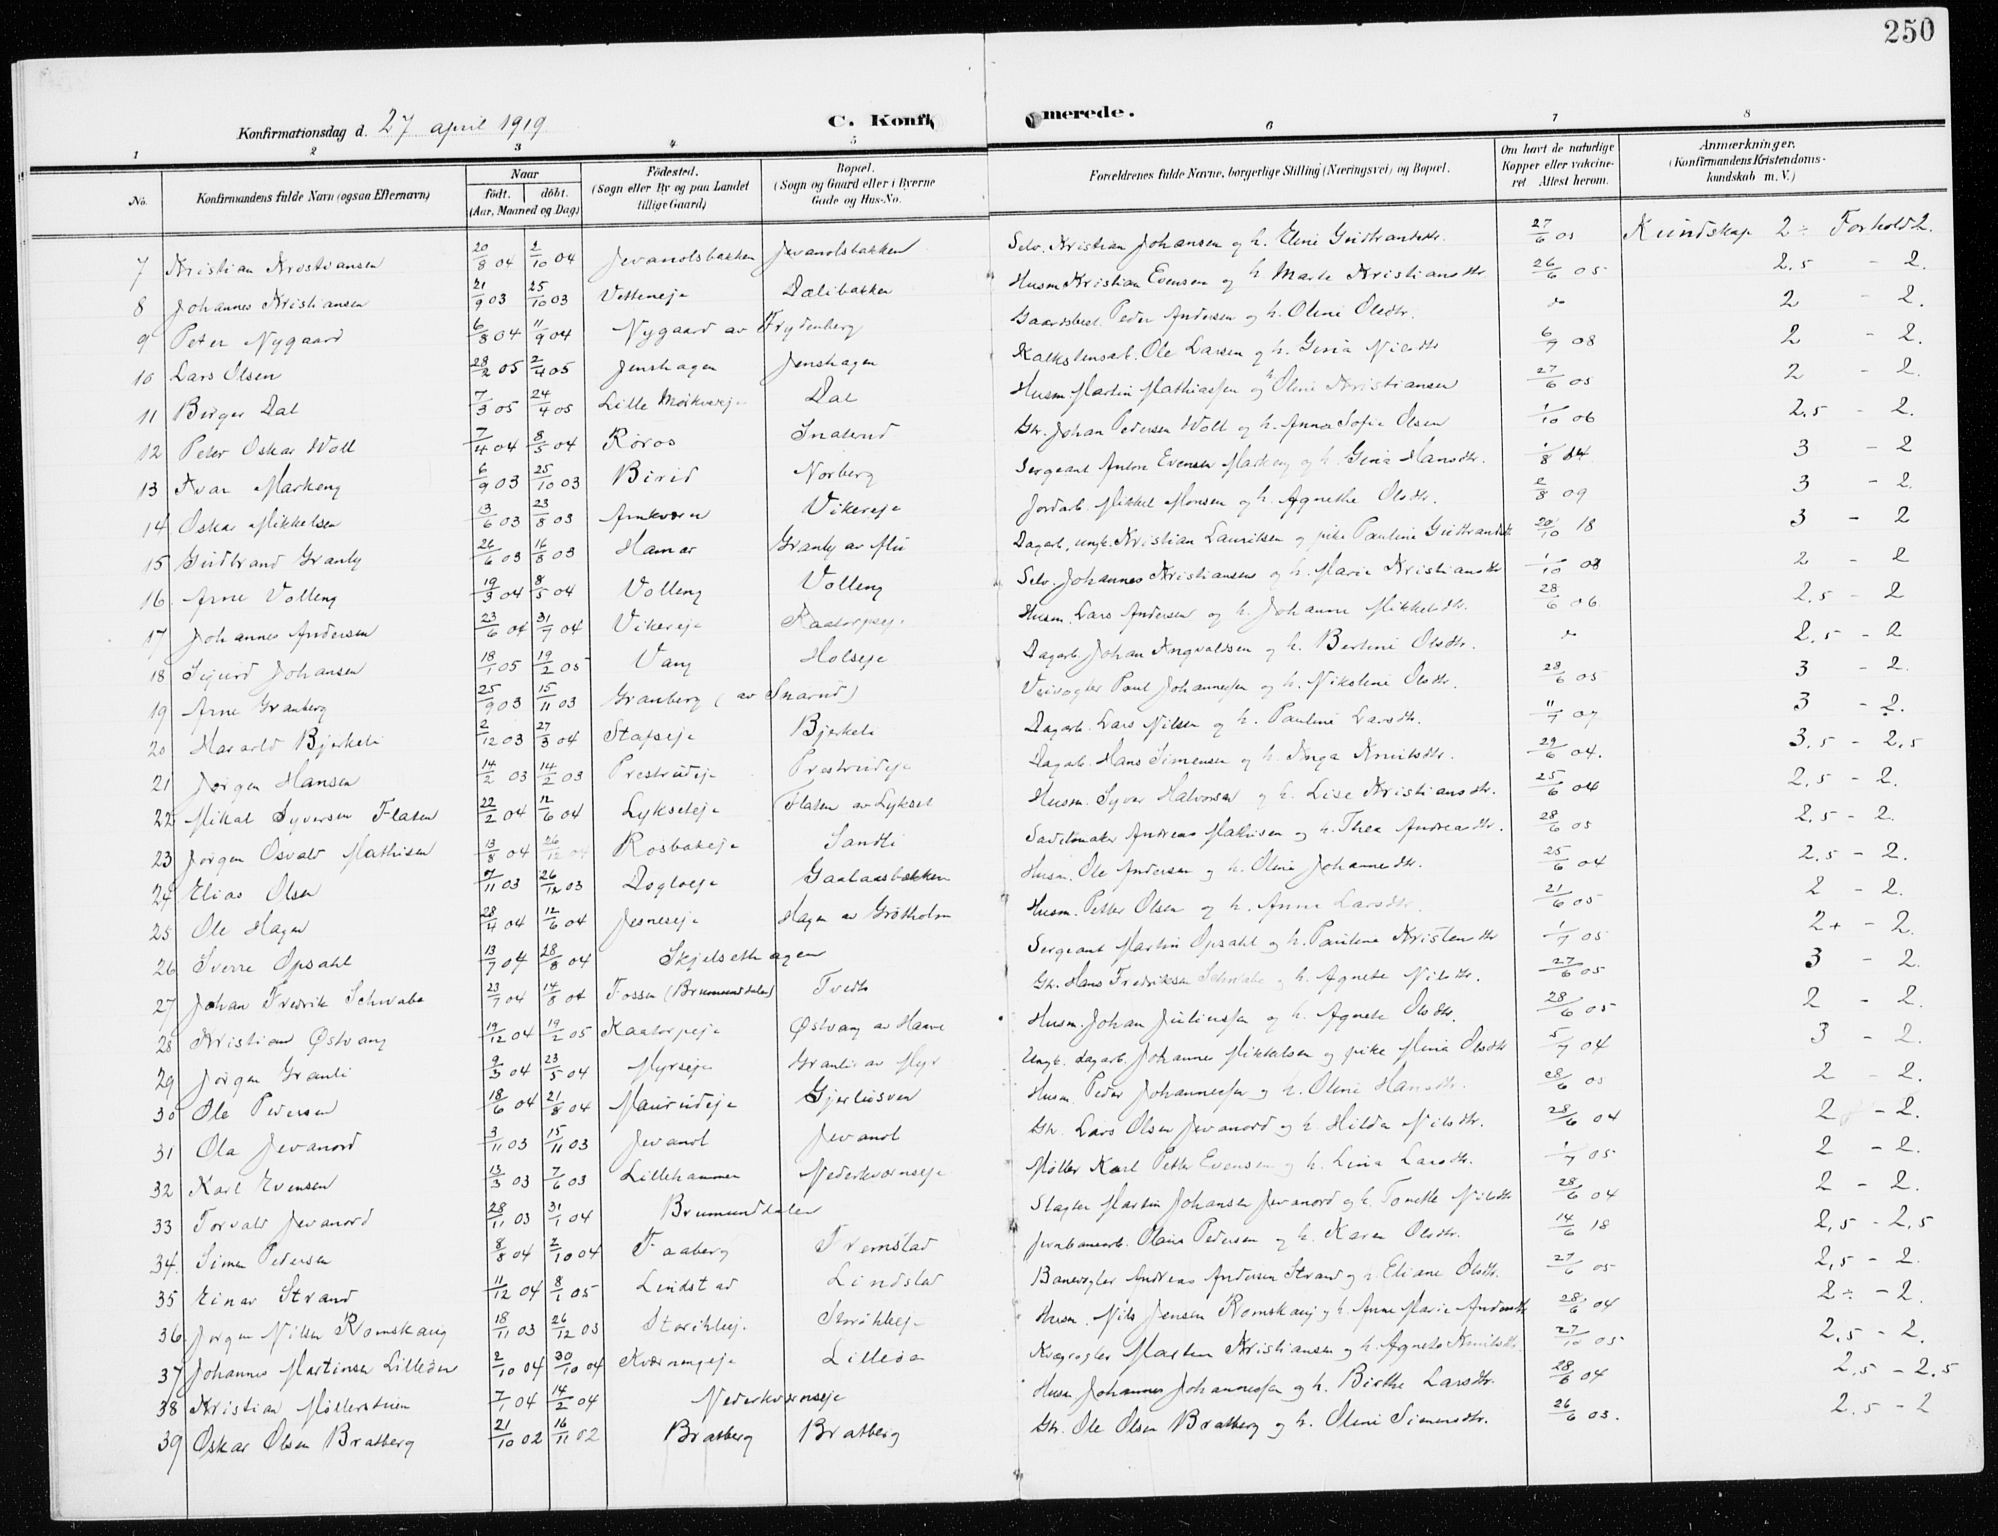 250
Konfirmationsdag d. 27 april 1919
C. Konfirmerede.
1 2 3 4 5 6 7 8
No. Konfirmandens fulde Navn (ogsaa Efternavn) Naar födt. döbt. (Aar, Maaned og Dag) Födested. (Sogn eller By og paa Landet tillige Gaard) Bopæl. (Sogn og Gaard eller i Byerne Gade og Hus-No. Forældrenes fulde Navne, borgerlige Stilling (Næringsvei) og Bopæl. Om havt de naturlige Kopper eller vakcineret. Attest herom. Anmærkninger. (Konfirmandens Kristendomskundskab m. V.)
7 Kristian Kristiansen 20/8 04 2/10 04 Jevanolsbakken Jevanolsbakken Selv. Kristian Johansen og h. Eline Gudbrandsdtr. 27/6 05 Kundskap 2÷ Forhold 2.
8 Johannes Kristiansen 21/9 03 25/10 03 Velteneje Dalibakken Husm Kristian Evensen og h. Marte Kristiansdtr 26/6 05 2.5 - 2.
9 Peter Nygaard 6/8 04 11/9 04 Nygaard av Frydenberg Gaardsbest. Peder Andersen og h. Oline Olsdtr. 2 - 2.
10 Lars Olsen 28/2 05 2/4 05 Jenshagen Jenshagen Kalkstensarb. Ole Larsen og h. Gina Nilsdtr 6/7 08 2 - 2.
11 Birger Dal 7/3 05 24/4 05 Lille Mørkveeje Dal Husm Martin Mathiassen og h. Oline Kristiansen 27/6 05 2 - 2.
12 Peter Oskar Woll 7/4 04 8/5 04 Röros Snalrud Gbr. Johan Pedersen Woll og h. Anna Sofie Olsen 1/10 06 2,5 - 2.
13 Ivar Markeng 6/9 03 25/10 03 Birid Norberg Sergeant Anton Evensen Markeng og h. Gina Hansdtr. 1/8 14 3 - 2
14 Oskar Mikkelsen 13/6 03 23/8 03 Arnkværn Vikereje Jordarb. Mikkel Monsen og h. Agnethe Olsdtr. 2/8 09 3 - 2.
15 Gudbrand Granly 26/6 03 16/8 03 Hamar Granly av Mu Dagarb. ungk. Kristian Lauritsen og pike Pauline Gudbrandsdtr 20/10 18 3 - 2
16 Arne Volleng 19/3 04 8/5 04 Volleng Volleng Selv. Johannes Kristiansen og h. Marie Kristiansdtr 1/10 08 2 - 2
17 Johannes Andersen 23/6 04 31/7 04 Vikereje Kaatorpeje Husm. Lars Andersen og h. Johanne Mikkelsdtr. 28/6 06 2.5 - 2
18 Sigurd Johansen 18/1 05 19/2 05 Vang Holseje Dagarb. Johan Ingvaldsen og h. Bertine Olsdtr. 2.5 - 2
19 Arne Granberg 25/9 03 15/11 03 Granberg (av Snarud) Veivogter Paul Johannessen og h. Nikoline Olsdtr. 28/6 05 3 - 2.
20 Harald Bjerkeli 2/12 03 27/3 04 Stafseje Bjerkeli Dagarb. Lars Nilsen og h. Pauline Larsdtr. 11/7 07 3 - 2.
21 Jørgen Hansen 14/2 03 14/2 03 Prestrudeje Prestrudeje Dagarb. Hans Simensen og h. Inga Knutsdtr. 29/6 04. 3.5 - 2.5
22 Mikal Syversen Flaten 22/2 04 12/6 04 Lykseteje Flaten av Lykset Husm. Syver Halvorsen og h. Lise Kristiansdtr. 25/6 04 2.5 - 2.
23 Jørgen Osvald Mathisen 13/8 04 26/12 04 Rosbakeje Sandli Sadelmaker Andreas Mathisen og h. Thea Andreasdtr. 28/6 05 2.5 - 2.
24 Elias Olsen 7/11 03 26/12 03 Dogloeje Gaalaasbakken Husm. Ole Andersen og h. Oline Johannesdtr. 25/6 04 2.5 - 2.
25 Ole Hagen 28/4 04 12/6 04 Jesneseje Hagen av Grøtholm Husm. Petter Olsen og h. Anne Larsdtr. 21/6 05 2 - 2.
26 Sverre Opsahl 13/7 04 28/8 04 Skjelsethagen Sergeant Martin Opsahl og h. Pauline Kristensdtr 1/7 05 2+ - 2.
27 Johan Fredrik Schwabe 23/7 04 14/8 04 Fossen (Brumunddalen) Tveth Gbr. Hans Fredriksen Schwabe og h. Agnete Nilsdtr. 27/6 05 3 - 2.
28 Kristian Østvang 19/12 04 19/2 05 Kaatorpeje Østvang av Haave Husm. Johan Juliussen og h. Agnete Olsdtr. 28/6 05 2 - 2.
29 Jørgen Granli 9/3 04 23/5 04 Myrseje Granli av Myr Ungk. dagarb. Johannes Mikkelsen og pike Mina Olsdtr 5/7 04 3 - 2.
30 Ole Pedersen 18/6 04 21/8 04 Maurudeje Gjerlusven Husm. Peder Johannessen og h. Oline Hansdtr. 28/6 05 2 - 2.
31 Ola Jevanord 3/11 03 15/11 03 Jevanol Jevanol Gbr. Lars Olsen Jevanord og h. Hilda Nilsdtr. 28/6 04 2 - 2.
32 Karl Evensen 13/3 03 7/6 03 Lillehammer Nederkværnseje Møller Karl Petter Evensen og h. Lina Larsdtr. 1/7 05 2 - 2.
33 Torvald Jevanord 28/11 03 31/1 04 Brumunddalen Slagter Martin Johansen Jevanord og h. Tonette Nilsdtr 28/6 04 2 - 2.
34. Simen Pedersen 8/8 04 2/10 04 Faaberg Fremstad Jernbanearb. Olaus Pedersen og h. Karen Olsdtr. 14/6 18 2,5 - 2,5
35 Einar Strand 11/12 04 8/1 05 Lindstad Lindstad Banevogter Andreas Andersen Strand og h. Eliane Olsdtr. 27/6 05 2,5 - 2.
36 Jørgen Nilsen Romskaug 18/11 03 26/12 03 Storihleje Storihleje Husm. Nils Jensen Romskaug og h. Anne Marie Andersdtr 28/6 04 2÷ - 2.
37 Johannes Martinsen Lilleøen 2/10 04 30/10 04 Kværnengeje Lilleøen Kvægrøgter Martin Kristiansen og h. Agnete Knutsdtr. 27/10 05 2,5 - 2.
38 Kristian Møllerstuen 7/1 04 14/2 04 Nederkværnseje Husm Johannes Johannessen og h. Birthe Larsdtr. 28/6 04 2.5 - 2.5
39 Oskar Olsen Bratberg 21/10 02 16/11 02 Bratberg Bratberg Gbr. Ole Olsen Bratberg og h. Oline Simensdtr. 26/6 03. 2.5 - 2